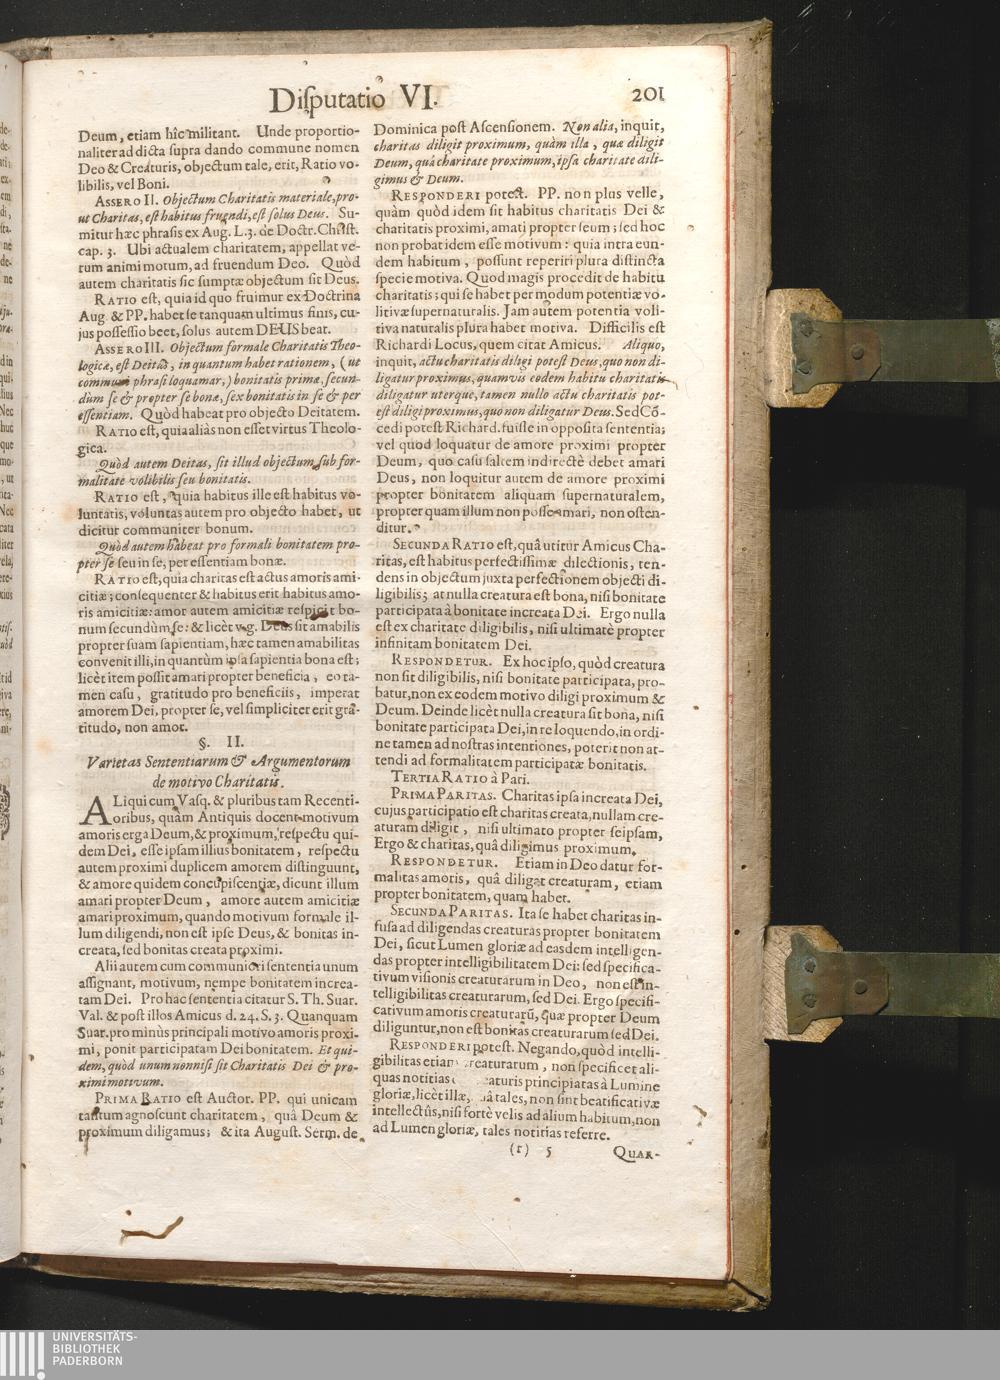 Disputatio VI.
201
Deum, etiam hîc militant. Unde proportio-
naliter ad dicta supra dando commune nomen
Deo & Creaturis, objectum tale, erit, Ratio vo-
libilis, vel Boni.
ASSERO II. Objectum Charitatis materiale, pro-
ut Charitas, est habitus fruendi, est solus Deus. Su-
mitur hæc phrasis ex Aug. L. 3. de Doctr. Christ.
cap. 3. Ubi actualem charitatem, appellat ve-
rum animi motum, ad fruendum Deo. Quòd
autem charitatis sic sumptæ objectum sit Deus.
RATIO est, quia id quo fruimur ex Doctrina
Aug. & PP. habet se tanquam ultimus finis, cu-
jus possessio beet, solus autem DEUS beat.
ASSERO III. Objectum formale Charitatis Theo-
logicæ, est Deitas, in quantum habet rationem, (ut
communi phrasi loquamar,) bonitatis primæ, secun-
dùm se & propter se bonæ, sex bonitatis in se & per
essentiam. Quòd habeat pro objecto Deitatem.
RATIO est, quia aliàs non esset virtus Theolo-
gica.
Quòd autem Deitas, sit illud objectum sub for-
malitate volibilis seu bonitatis.
RATIO est, quia habitus ille est habitus vo-
luntatis, voluntas autem pro objecto habet, ut
dicitur communiter bonum.
Quòd autem habeat pro formali bonitatem pro-
pter se seu in se, per essentiam bonæ.
RATIO est, quia charitas est actus amoris ami-
citiæ; consequenter & habitus erit habitus amo-
ris amicitiæ: amor autem amicitiæ respicit bo-
num secundùm se: & licèt v.g. Deus sit amabilis
propter suam sapientiam, hæc tamen amabilitas
convenit illi, in quantùm ipsa sapientia bona est;
licèt item possit amari propter beneficia, eo ta-
men casu, gratitudo pro beneficiis, imperat
amorem Dei, propter se, vel simpliciter erit gra-
titudo, non amor.
§. II.
Varietas Sententiarum & Argumentorum
de motivo Charitatis.
ALiqui cum Vasq. & pluribus tam Recenti-
oribus, quàm Antiquis docent motivum
amoris erga Deum, & proximum, respectu qui-
dem Dei, esse ipsam illius bonitatem, respectu
autem proximi duplicem amorem distinguunt,
& amore quidem concupiscentiæ, dicunt illum
amari propter Deum, amore autem amicitiæ
amari proximum, quando motivum formale il-
lum diligendi, non est ipse Deus, & bonitas in-
creata, sed bonitas creata proximi.
Alii autem cum communiori sententia unum
assignant, motivum, nempe bonitatem increa-
tam Dei. Pro hac sententia citatur S. Th. Suar.
Val. & post illos Amicus d. 24. S. 3. Quanquam
Suar. pro minùs principali motivo amoris proxi-
mi, ponit participatam Dei bonitatem. Et qui-
dem, quòd unum nonnisi sit Charitatis Dei & pro-
ximi motivum.
PRIMA RATIO est Auctor. PP. qui unicam
tantum agnoscunt charitatem, quâ Deum &
proximum diligamus; & ita August. Serm. de
Dominica post Ascensionem. Non alia, inquit,
charitas diligit proximum, quàm illa, quæ diligit
Deum, quâ charitate proximum, ipsa charitate dili-
gimus & Deum.
RESPONDERI potest. PP. non plus velle,
quàm quòd idem sit habitus charitatis Dei &
charitatis proximi, amati propter seum; sed hoc
non probat idem esse motivum: quia intra eun-
dem habitum, possunt reperiri plura distincta
specie motiva. Quod magis procedit de habitu
charitatis; qui se habet per modum potentiæ vo-
litivæ supernaturalis. Jam autem potentia voli-
tiva naturalis plura habet motiva. Difficilis est
Richardi Locus, quem citat Amicus. Aliquo,
inquit, actu charitatis diligi potest Deus, quo non di-
ligatur proximus, quamvis eodem habitu charitatis
diligatur uterque, tamen nullo actu charitatis pot-
est diligi proximus, quo non diligatur Deus. Sed Cõ-
cedi potest Richard. fuisse in opposita sententia;
vel quod loquatur de amore proximi propter
Deum, quo casu saltem indirectè debet amari
Deus, non loquitur autem de amore proximi
propter bonitatem aliquam supernaturalem,
propter quam illum non posse amari, non osten-
ditur.
SECUNDA RATIO est, quâ utitur Amicus Cha-
ritas, est habitus perfectissimæ dilectionis, ten-
dens in objectum juxta perfectionem objecti di-
ligibilis; at nulla creatura est bona, nisi bonitate
participata à bonitate increata Dei. Ergo nulla
est ex charitate diligibilis, nisi ultimatè propter
infinitam bonitatem Dei.
RESPONDETUR. Ex hoc ipso, quòd creatura
non sit diligibilis, nisi bonitate participata, pro-
batur, non ex eodem motivo diligi proximum &
Deum. Deinde licèt nulla creatura sit bona, nisi
bonitate participata Dei, in re loquendo, in ordi-
ne tamen ad nostras intentiones, poterit non at-
tendi ad formalitatem participatæ bonitatis.
TERTIA RATIO à Pari.
PRIMA PARITAS. Charitas ipsa increata Dei,
cujus participatio est charitas creata, nullam cre-
aturam diligit, nisi ultimato propter seipsam,
Ergo & charitas, quâ diligimus proximum.
RESPONDETUR. Etiam in Deo datur for-
malitas amoris, quâ diligat creaturam, etiam
propter bonitatem, quam habet.
SECUNDA PARITAS. Ita se habet charitas in-
fusa ad diligendas creaturas propter bonitatem
Dei, sicut Lumen gloriæ ad easdem intelligen-
das propter intelligibilitatem Dei: sed specifica-
tivum visionis creaturarum in Deo, non est in-
telligibilitas creaturarum, sed Dei. Ergo specifi-
cativum amoris creaturarũ, quæ propter Deum
diliguntur, non est bonitas creaturarum sed Dei.
RESPONDERI potest. Negando, quòd intelli-
gibilitas etiam creaturarum, non specificet ali-
quas notitias aturis principiatas à Lumine
gloriæ, licèt illæ, tales, non sint beatificativæ
intellectûs, nisi fortè velis ad alium habitum, non
ad Lumen gloriæ, tales notitias referre.
(r) 5
QUAR-
UNIVERSITÄTS-
BIBLIOTHEK
PADERBORN